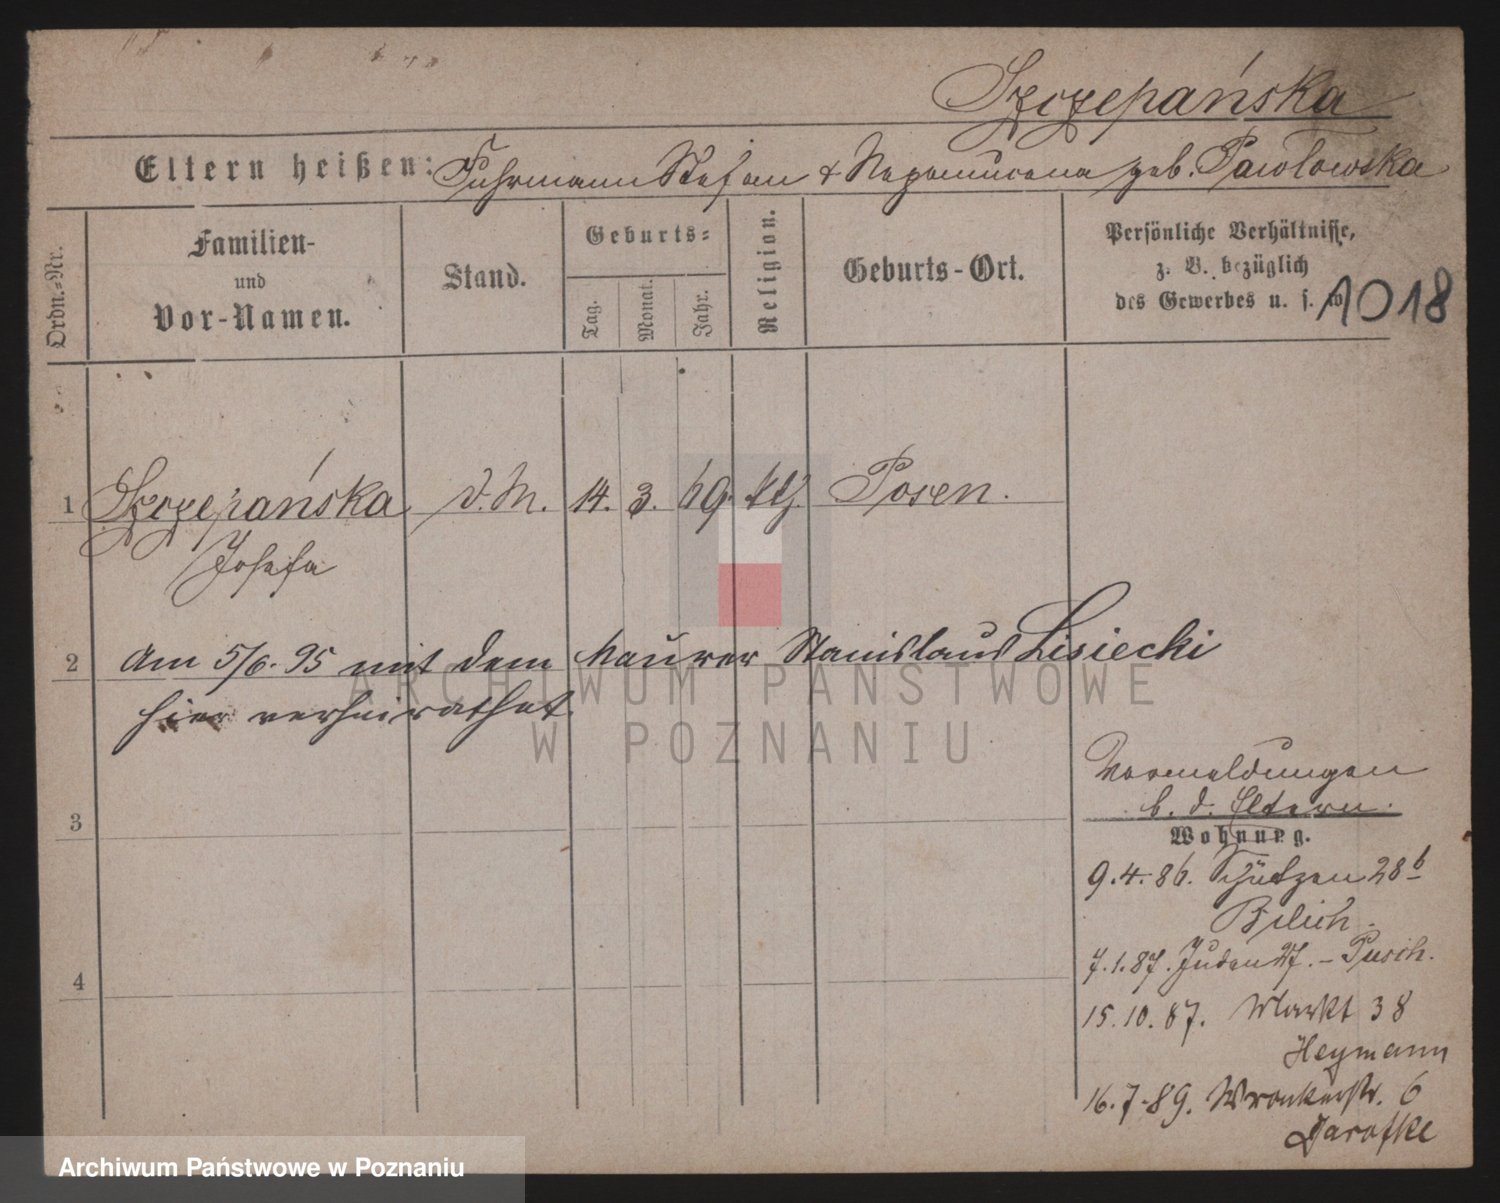 Szczepańska
Eltern heißen: Fuhrmann Stefan & Nepomucena geb. Pawlowska
Ordn.-Nr.
Familien-
und
Vor-Namen.
Stand.
Geburts-
Tag.
Monat.
Jahr.
Religion.
Geburts-Ort.
Persönliche Verhältnisse,
z. B. bezüglich
des Gewerbes u. s. w.
1018
1 Szczepańska d. M. 14. 3. 69. kth. Posen.
Josefa
2 Am 5/6. 95 mit dem Maurer Stanislaus Lisiecki
hier verheirathet.
ARCHIWUM PAŃSTWOWE
W POZNANIU
Vormeldungen
b. d. Eltern.
3
Wohnung.
9.4.86. Schützen 28b
7.1.87. Juden 27. - Pusch.
4
15.10.87. Markt 38
Heymann
16.7.89. Wronkerstr. 6
Archiwum Państwowe w Poznaniu